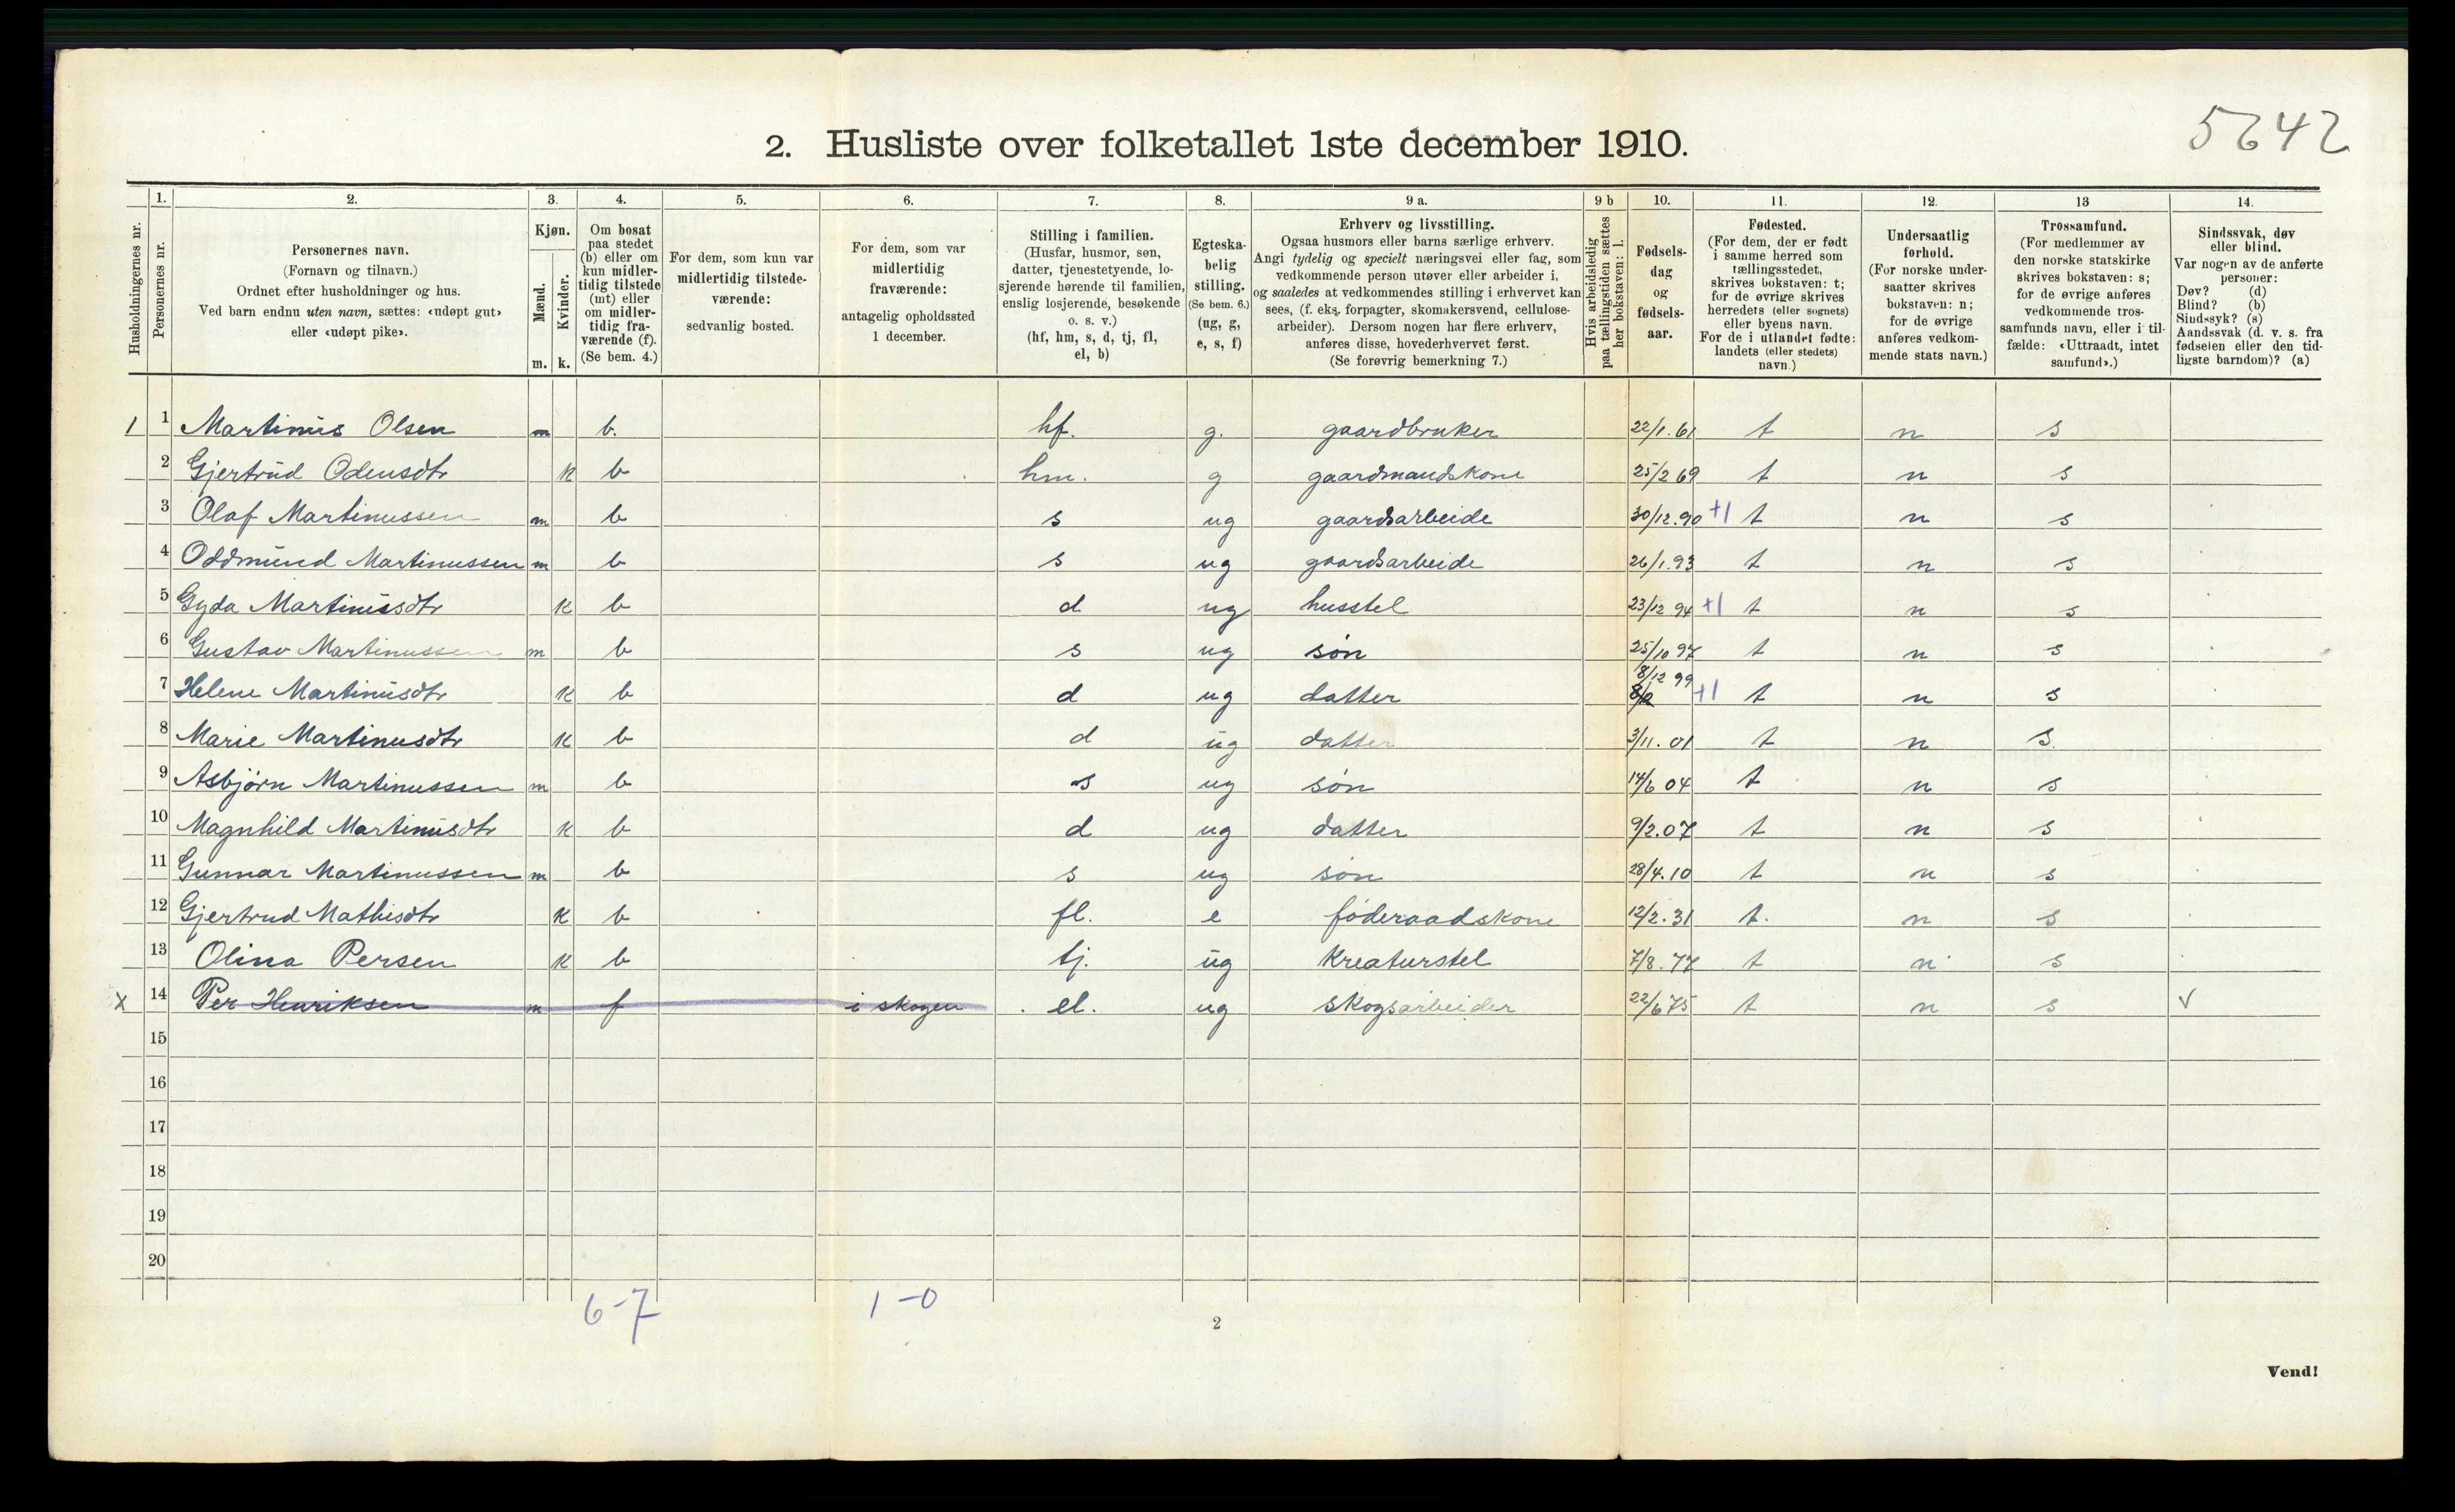 5642
2. Husliste over folketallet 1ste december 1910.
1. 2. 3. 4. 5. 6. 7. 8. 9 a. 9 b 10. 11. 12. 13 14.
Husholdningernes nr.
Personernes nr.
Personernes navn.
(Fornavn og tilnavn.)
Ordnet efter husholdninger og hus.
Ved barn endnu uten navn, sættes: «udøpt gut»
eller «udøpt pike».
Kjøn.
Mænd.
Kvinder.
m. k.
Om bosat
paa stedet
(b) eller om
kun midler-
tidig tilstede
(mt) eller
om midler-
tidig fra-
værende (f).
(Se bem. 4.)
For dem, som kun var
midlertidig tilstede-
værende:
sedvanlig bosted.
For dem, som var
midlertidig
fraværende:
antagelig opholdssted
1 december.
Stilling i familien.
(Husfar, husmor, søn,
datter, tjenestetyende, lo-
sjerende hørende til familien,
enslig losjerende, besøkende
o. s. v.)
(hf, hm, s, d, tj, fl,
el, b)
Egteska-
belig
stilling.
(Se bem. 6.)
(ug, g,
e, s, f)
Erhverv og livsstilling.
Ogsaa husmors eller barns særlige erhverv.
Angi tydelig og specielt næringsvei eller fag, som
vedkommende person utøver eller arbeider i,
og saaledes at vedkommendes stilling i erhvervet kan
sees, (f. eks. forpagter, skomakersvend, cellulose-
arbeider). Dersom nogen har flere erhverv,
anføres disse, hovederhvervet først.
(Se forøvrig bemerkning 7.)
Hvis arbeidsledig
paa tællingstiden sættes
her bokstaven: l.
Fødsels-
dag
og
fødsels-
aar.
Fødested.
(For dem, der er født
i samme herred som
tællingsstedet,
skrives bokstaven: t;
for de øvrige skrives
herredets (eller sognets)
eller byens navn.
For de i utlandet fødte:
landets (eller stedets)
navn.)
Undersaatlig
forhold.
(For norske under-
saatter skrives
bokstaven: n;
for de øvrige
anføres vedkom-
mende stats navn.)
Trossamfund.
(For medlemmer av
den norske statskirke
skrives bokstaven: s;
for de øvrige anføres
vedkommende tros-
samfunds navn, eller i til-
fælde: «Uttraadt, intet
samfund».)
Sindssvak, døv
eller blind.
Var nogen av de anførte
personer:
Døv? (d)
Blind? (b)
Sindssyk? (s)
Aandssvak (d. v. s. fra
fødselen eller den tid-
ligste barndom)? (a)
1 1 Martinus Olsen m b. hf. g. gaardbruker 22/1.61 t n s
2 Gjertrud Odensdtr k b hm. g gaardmandskone 25/2 69 t n s
3 Olaf Martinussen m b s ug gaardsarbeide 30/12.90 +1 t n s
4 Oddmund Martinussen m b s ug gaardsarbeide 26/1.93 t n s
5 Gyda Martinusdtr k b d ug husstel 23/12 94 +1 t n s
6 Gustav Martinussen m b s ug søn 25/10 97 t n s
7 Helene Martinusdtr k b d ug datter 8/12 99 +1 t n s
8 Marie Martinusdtr k b d ug datter 3/11.01 t n s.
9 Asbjørn Martinussen m b s ug søn 14/6 04 t n s
10 Magnhild Martinusdtr k b d ug datter 9/2.07 t n s
11 Gunnar Martinussen m b s ug søn 28/4.10 t n s
12 Gjertrud Mathisdtr k b fl. e føderaadskone 12/2.31 t. n s
13 Olina Persen k b tj. ug kreaturstel 7/8.77 t n s
x 14 Per Henriksen m f i skogen el. ug skogsarbeider 22/6 75 t n s v
15
16
17
18
19
20
6-7 1-0
2
Vend!